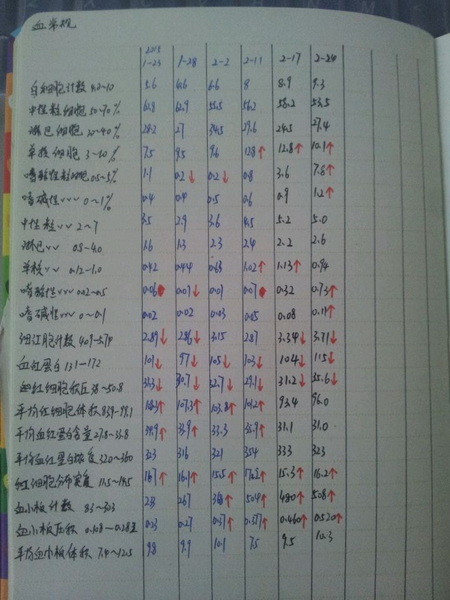 血常规
2013
1-23 1-28 2-2 2-11 2-17 2-24
白细胞计数 4.0~10 5.6 6.6 6.6 8 8.9 9.3
中性粒细胞 50~70% 62.9 56.2 58.2 53.5
淋巴细胞 20~40% 28.2 27 34.5 29.6 24.5 27.4
单核细胞 3~10% 7.5 9.5 9.6 12.8↑ 10.1↑
嗜酸性粒细胞 0.5~5% 1.1 0.2↓ 0.2↓ 0.8 3.6 7.8↑
嗜碱性〃〃 0~1% 0.4 0.4 0.5 0.6 0.9 1.2↑
中性粒〃〃 2~7 3.5 2.9 3.6 4.5 5.2 5.0
淋巴〃〃 0.8~4.0 1.6 1.3 2.3 2.4 2.2 2.6
单核〃〃 0.12~1.0 0.42 0.44 0.63 1.02↑ 1.13↑ 0.94
嗜酸性〃〃 0.02~0.5 0.06 0.01↓ 0.01 0.07 0.32 0.73↑
嗜碱性〃〃 0~0.1 0.02 0.02 0.03 0.05 0.08 0.11↑
红细胞计数 4.09~5.74 2.89↓ 2.86↓ 3.15 2.87 3.34↓ 3.71↓
血红蛋白 131~172 101↓ 97↓ 105↓ 103↓ 104↓ 115↓
血红细胞积压 38~50.8 30.7↓ 32.7↓ 29.1↓ 31.2↓ 35.6↓
平均红细胞体积 107.3↑ 103.8↑ 101.2↑ 93.4 96.0
平均血红蛋白含量 27.8~33.8 33.9↑ 33.3 35.9↑ 31.1 31.0
平均血红蛋白浓度 320~360 323 316 321 354 333 323
红细胞分布宽度 16.7↑ 16.1↑ 15.5↑ 15.3↑ 16.2↑
血小板计数 83~303 267 504↑ 480↑ 508↑
血小板压积 0.23 0.27 0.37↑ 0.460↑ 0.520↑
平均血小板体积 7.4~12.5 9.8 9.9 10.1 7.5 9.5 10.3